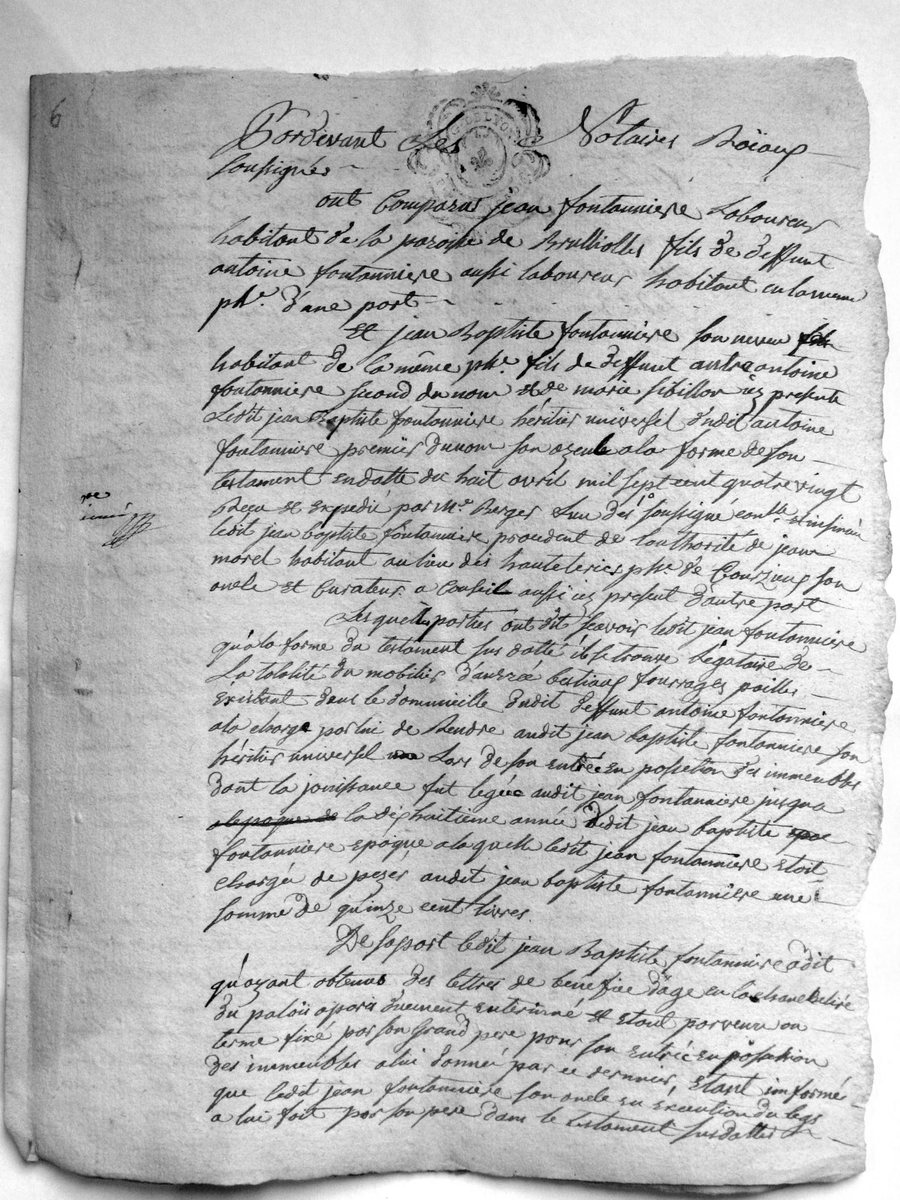 6
G. DE LYON
Pordevant Les Notaires Roïaux
soussignés
ont Comparus jean fontanniere Laboureur
habitant de la paroisse de Brulliolles fils de deffunt
antoine fontanniere aussi laboureur habitant en la meme
phe. d'une part
Et jean Baptiste fontanniere son neveu
habitant de la même phe. fils de deffunt autre antoine
fontanniere second du nom et de marie icy presente
Ledit jean Baptiste fontanniere héritier universel dudit antoine
fontanniere premier du nom son ayeule a la forme de son
testament en datte du huit avril mil sept cent quatre vingt
Reçu et expedié par Me. Berger L'un des soussigne conlle. et insinué
ledit jean baptiste fontanniere procedent de L'authorité de jean
morel habitant au lieu des hauteteries phe. de Courzieux son
oncle et Curateur a Conseil aussi icy present d'autre part
Lesquelles parties ont dit sçavoir ledit jean fontanniere
qu'a la forme du testament sus datté il se trouve légataire de
La totalité du mobilier danrée bestiaux fourrages pailles
Existant dans le dommicille dudit deffunt antoine fontanniere
a la charge par lui de Rendre audit jean baptiste fontanniere son
héritier universel Lors de son entrée en possession des immeubles
dont la jouissance fut leguée audit jean fontanniere jusqua
a lepoque de la dix huitième année dudit jean baptiste
fontanniere epoque a laquelle ledit jean fontanniere etoit
chargé de payer audit jean baptiste fontanniere une
somme de quinze cent livres.
De sa part ledit jean Baptiste fontanniere a dit
qu'ayant obtenus des lettres de benefice d'age en la chancellerie
du palais a paris duement enterinné et etant parvenu au
terme fixé par son grand pere pour son entrée en possession
des immeubles a lui donné par ce dernier, etant informé
que ledit jean fontanniere son oncle en execution du legs
a lui fait par son pere dans le testament susdatté